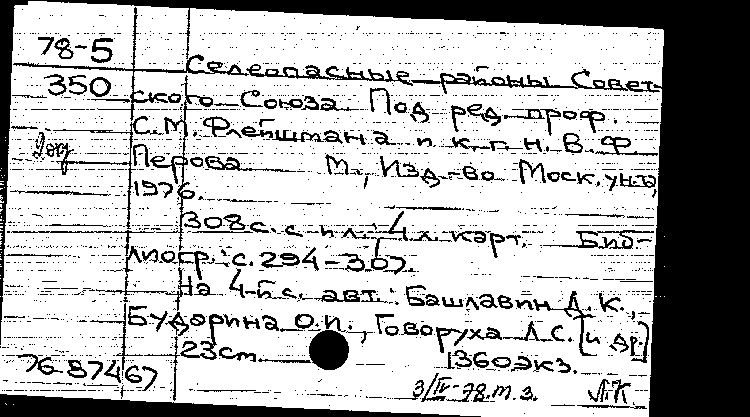 78-5
350
Селеопасные районы Совет-
ского Союза. Под ред. проф.
С.М. Флейшмана и к.г.н. В.Ф.
Перова М., Изд-во Моск. ун-та,
1976.
308 с. с ил.; 4 л. карт. Биб-
лиогр.: с. 294-307.
На 4-й с. авт.: Башлавин Д.К.,
Бударина О.И., Говоруха Л.С. [и др.]
23 см. 1360 экз.
76-87467
3/IV-78. т. з. Л.К.